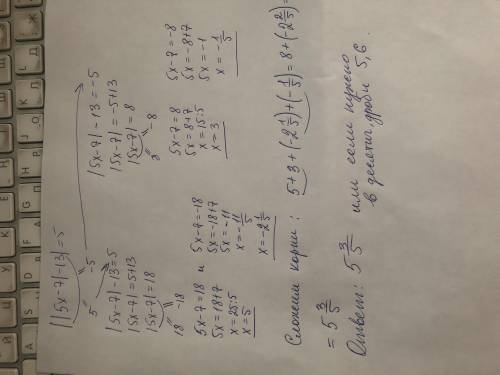 ||5x-7|-13|=5
5 -5
|5x-7|-13=5
|5x-7|=5+13
|5x-7|=18
18 -18
5x-7=18 и 5x-7=-18
5x=18+7 5x=-18+7
x=25:5 5x=-11
x=5 x=-11/5
x=-2 1/5
|5x-7|-13=-5
|5x-7|=-5+13
|5x-7|=8
8 -8
5x-7=8 5x-7=-8
5x=8+7 5x=-8+7
x=15:5 5x=-1
x=3 x=-1/5
Сложим корни: 5+3+(-2 1/5)+(-1/5)=8+(-2 2/5)=
=5 3/5
Ответ: 5 3/5 или если нужно
в десятич. дроби 5,6.